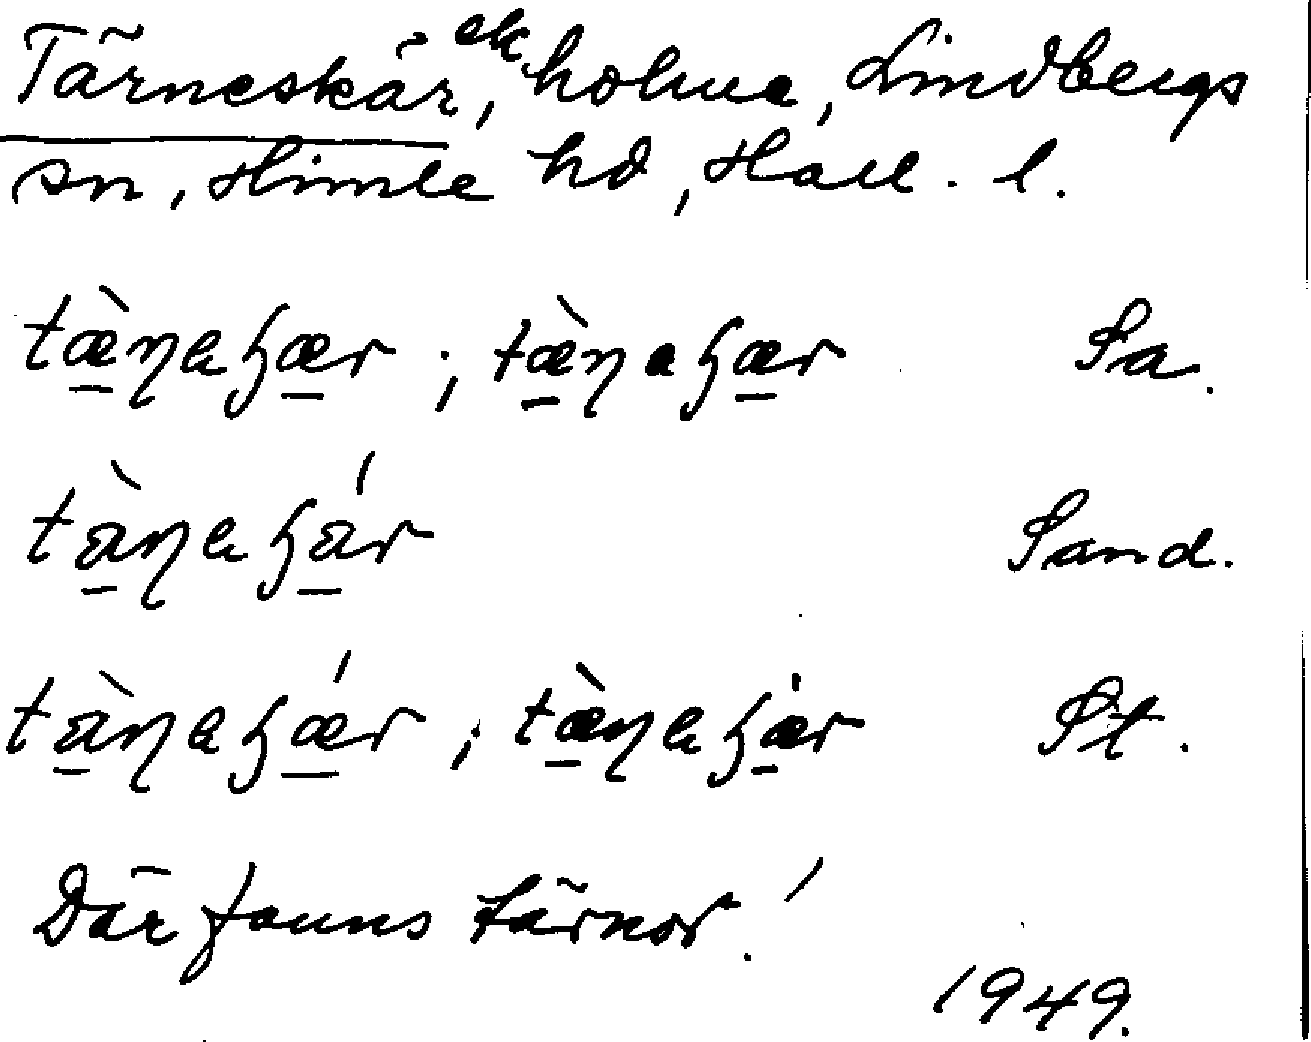 Tärneskär, ek. holme, Lindbergs
sn, Himle hd, Hall. l.
tæ̀ŋeɧær ; tæ̀ŋeɧær Sa.
tæ̀ŋeɧǽr Sand.
tæ̀ŋeɧǽr ; tæ̀ŋeɧær St.
Där fanns tärnor.'
1949.